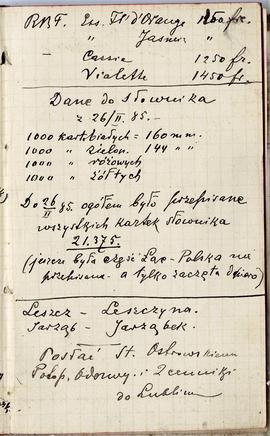 RBF. Ess. Fl d'Orange 1250 fr.
" Jasmin "
— Cassie 1250 fr.
Violette 1450 fr.
Dane do Słownika
z 26/II 85. —
1000 kart białych = 160 mm.
1000 " zielon. 144 " "
1000 " różowych
1000 " żółtych
Do 26/II 85. ogółem było przepisane
wszystkich kartek słownika
21.375.
(jeszcze była część Łac - Polska nie
przepisana - a tylko zaczęta dopiero)
Leszcz - Leszczyna.
Jarząb - Jarząbek.
Posłać St. Ostrowskiemu
i Cenniki
do Lublina